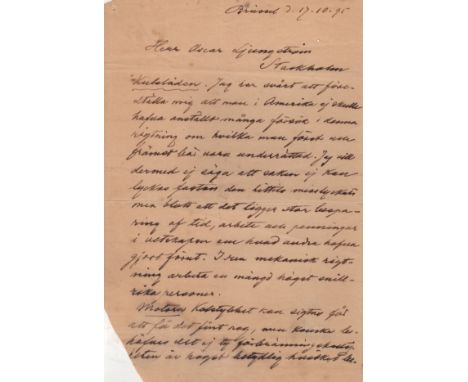 d. 17-10-95
Herr Oscar Ljungström
Stockholm
Kulstöden. Jag har svårt att före-
ställa mig att man i Amerika ej skulle
hafva anställt många försök i denna
rigtning om hvilka man först och
främst bör vara underrättad. Jag vill
dermed ej säga att saken ej kan
lyckas fastän den hittils misslyckats
men blott att det ligger stor bespa-
ring af tid, arbete och penningar
i vetskapen om hvad andra hafva
gjort förut. I den mekanisk rigt-
ning arbeta en mängd högst snill-
rika personer.
kolstybbet kan
att få det fint nog, men kanske be-
höfves det ej ty
är högst betydlig